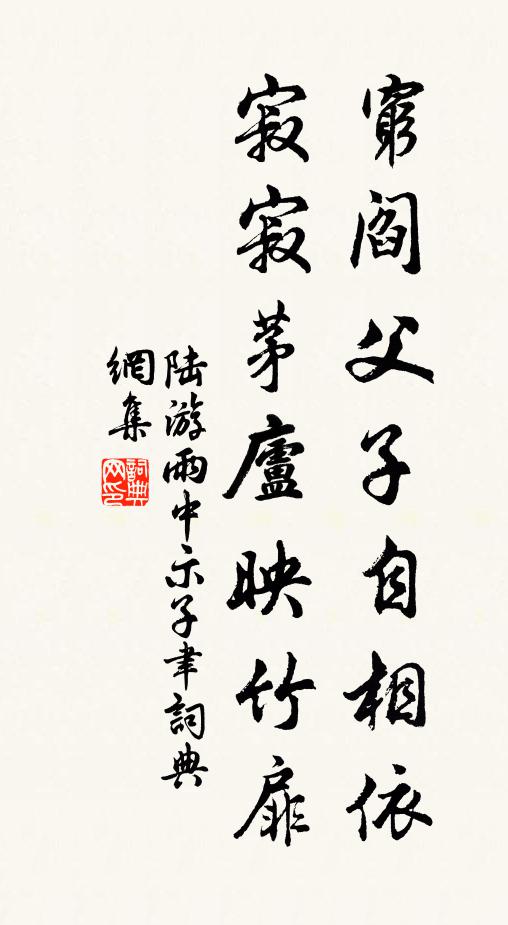 窮閻父子自相依
寂寂茅廬映竹扉
陆游雨中示子聿詞典
網集
詞典网印